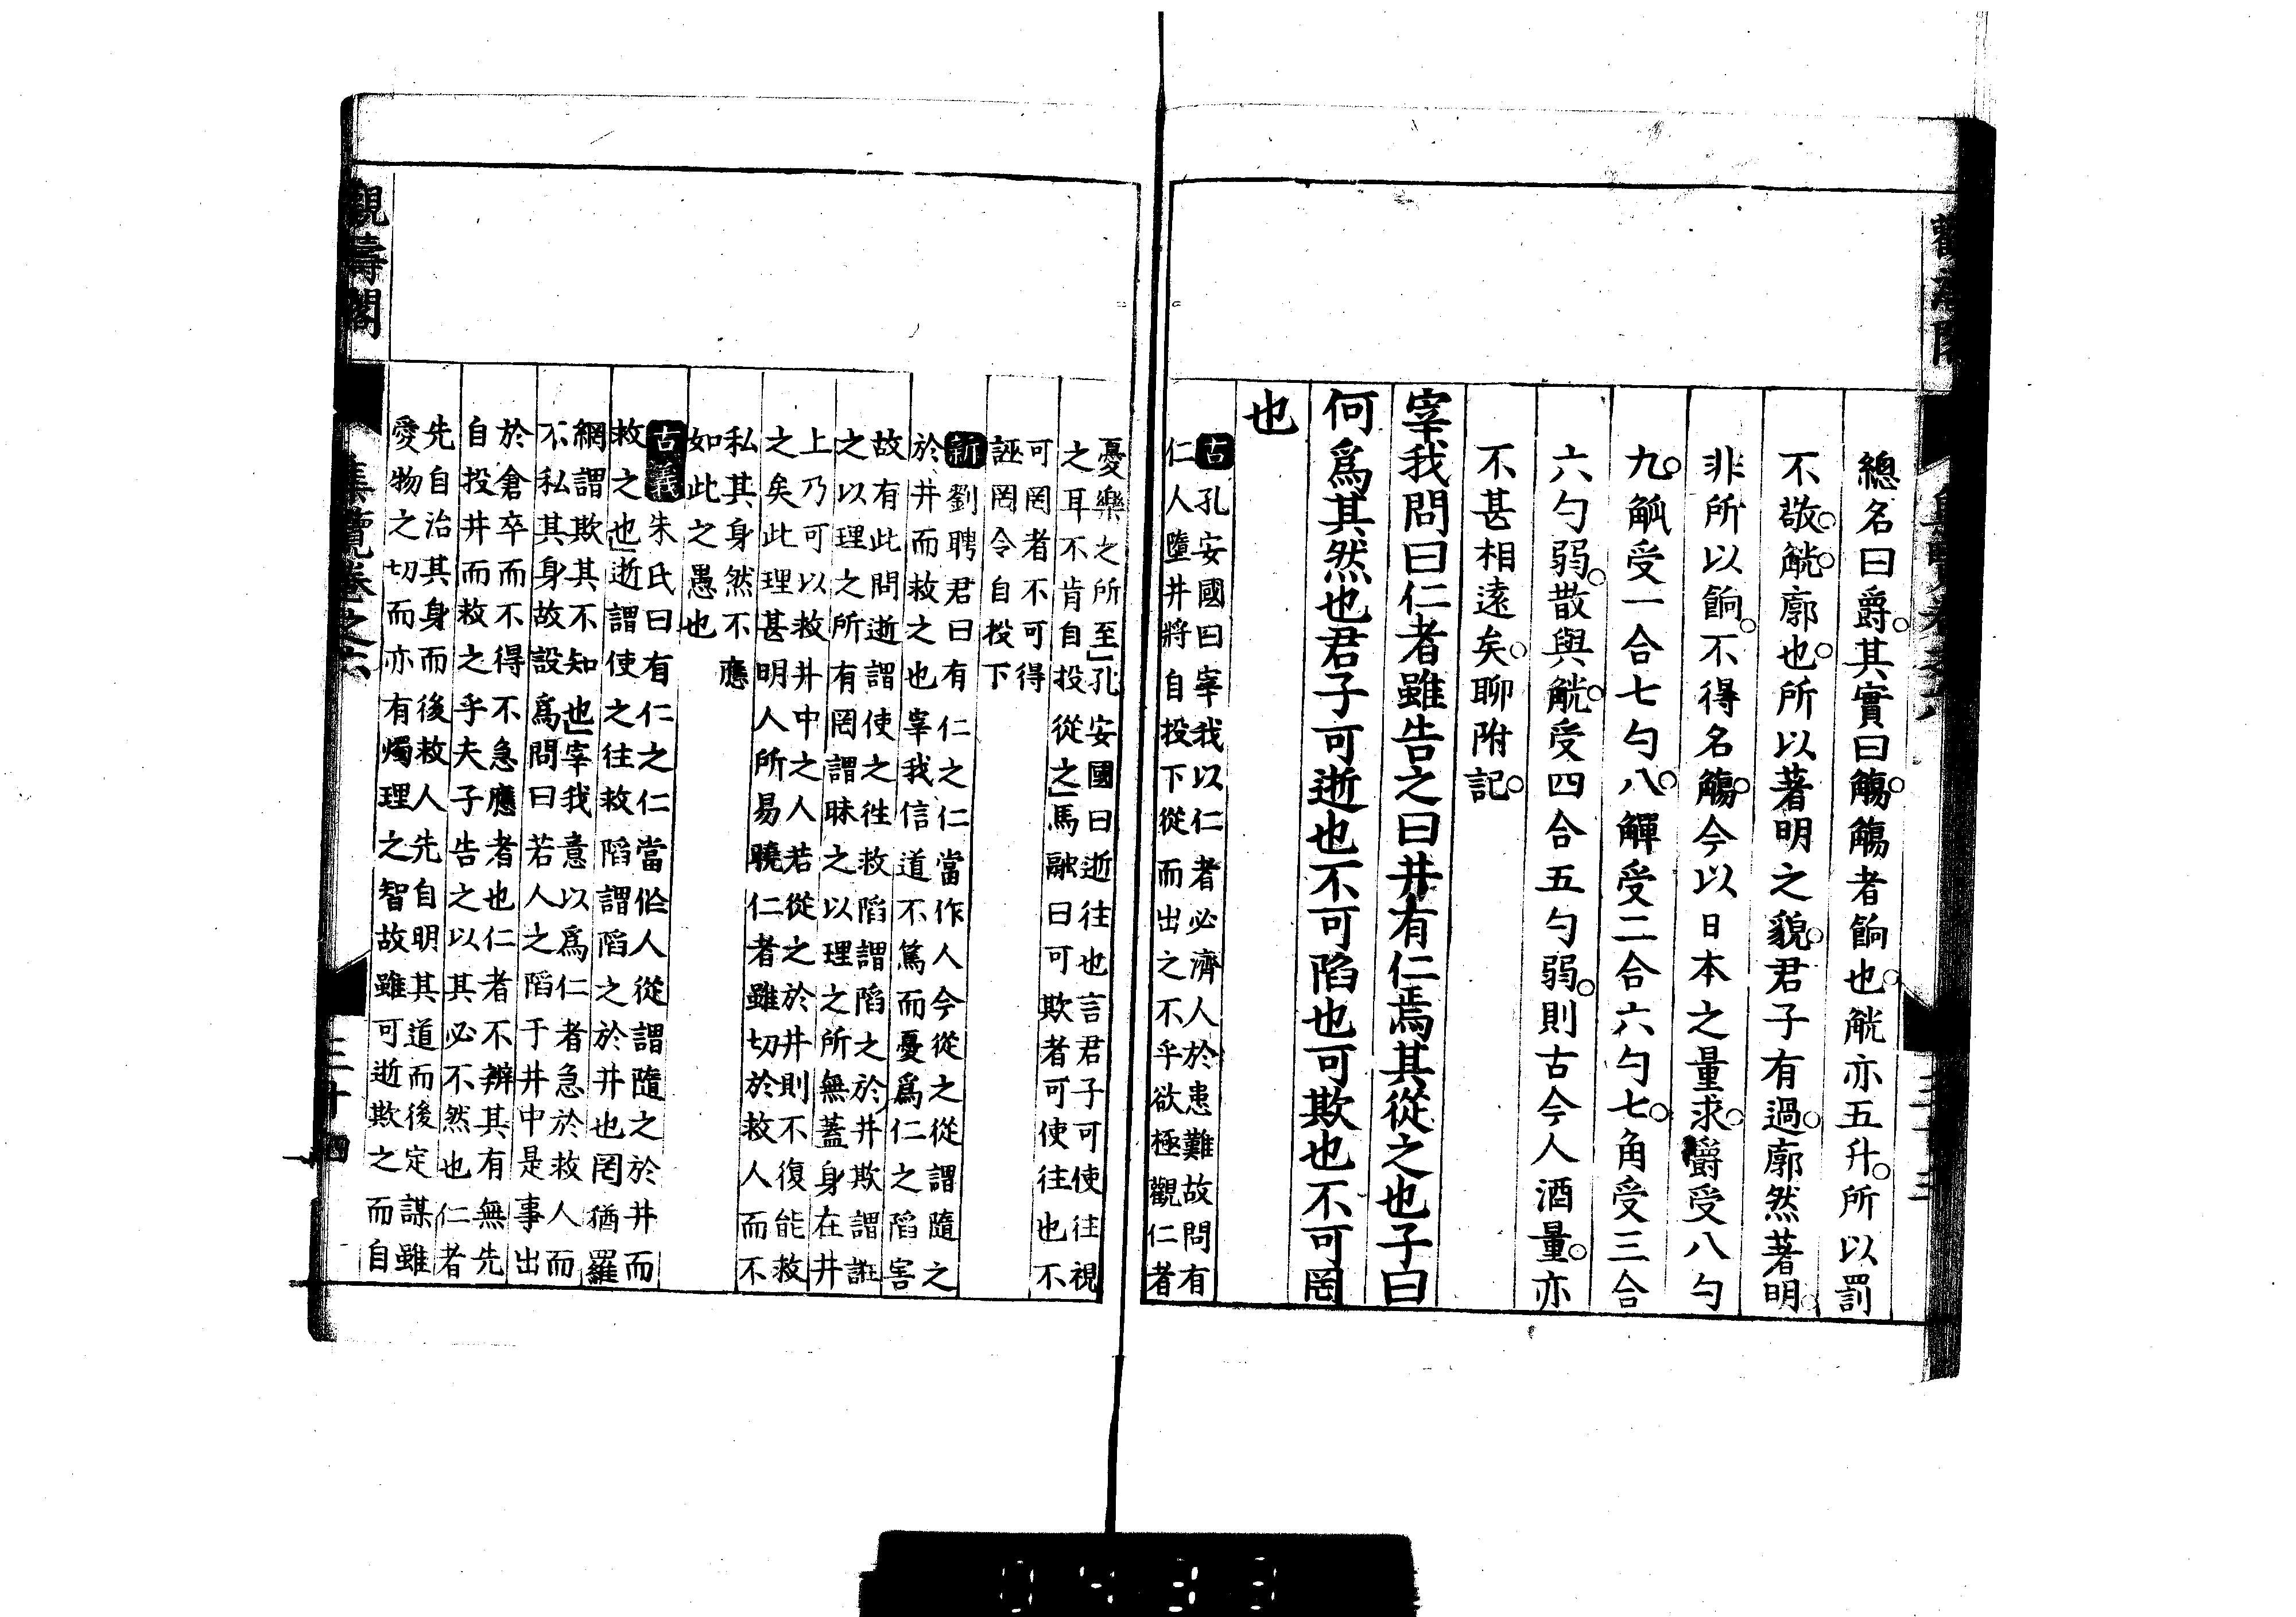 總名曰爵。其實曰觴。觴者餉也。觥亦五升。所以罰
不敬。觥。廓也。所以著明之貌。君子有過。廓然著明。
非所以餉。不得名觴。今以日本之量求。爵受八勺
九。觚受一合七勺八。觶受二合六勺七。角受三合
六勺弱。散與觥。受四合五勺弱。則古今人酒量。亦
不甚相遠矣。聊附記。
宰我問曰仁者雖告之曰井有仁焉其從之也子曰
何爲其然也君子可逝也不可陷也可欺也不可罔
也
古孔安國曰宰我以仁者必濟人於患難故問有
仁人墮井將自投下從而出之不乎欲極觀仁者
憂樂之所至」孔安國曰逝往也言君子可使往視
之耳不肯自投從之」馬融曰可欺者可使往也不
可罔者不可得
誣罔令自投下
新劉聘君曰有仁之仁當作人今從之從謂隨之
於井而救之也宰我信道不篤而憂爲仁之陷害
故有此問逝謂使之徃救陷謂陷之於井欺謂誑
之以理之所有罔謂昧之以理之所無蓋身在井
上乃可以救井中之人若從之於井則不復能救
之矣此理甚明人所易曉仁者雖切於救人而不
私其身然不應
如此之愚也
古義朱氏曰有仁之仁當作人從謂隨之於井而
救之也」逝謂使之往救陷謂陷之於井也罔猶羅
網謂欺其不知也」宰我意以爲仁者急於救人而
不私其身故設爲問曰若人之陷于井中是事出
於倉卒而不得不急應者也仁者不辨其有無先
自投井而救之乎夫子告之以其必不然也仁者
先自治其身而後救人先自明其道而後定謀雖
愛物之切而亦有燭理之智故雖可逝欺之而自
觀濤閣
集覽卷之六
三十四